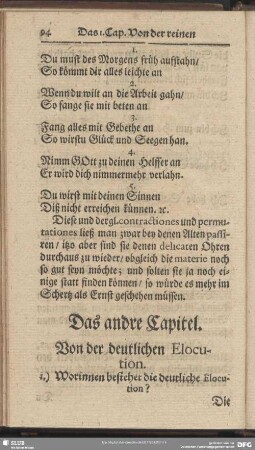 94 Das 1. Cap. Von der reinen
1.
Du must des Morgens früh aufstahn/
So kömmt dir alles leichte an
2.
Wenn du wilt an die Arbeit gahn/
So fange sie mit beten an
3.
Fang alles mit Gebethe an
So wirstu Glück und Seegen han.
4.
Nimm GOtt zu deinen Helffer an
Er wird dich nimmermehr verlahn.
5.
Du wirst mit deinen Sinnen
Diß nicht erreichen künnen. ꝛc.
Diese und dergl. contractiones und permu-
tationes ließ man zwar bey denen Alten passi-
ren/ itzo aber sind sie denen delicaten Ohren
durchaus zu wieder/ obgleich die materie noch
so gut seyn möchte; und solten sie ja noch ei-
nige statt finden können/ so würde es mehr im
Schertz als Ernst geschehen müssen.
Das andre Capitel.
Von der deutlichen Elocu-
tion.
1.) Worinnen bestehet die deutliche Elocu-
tion?
Die
SLUB